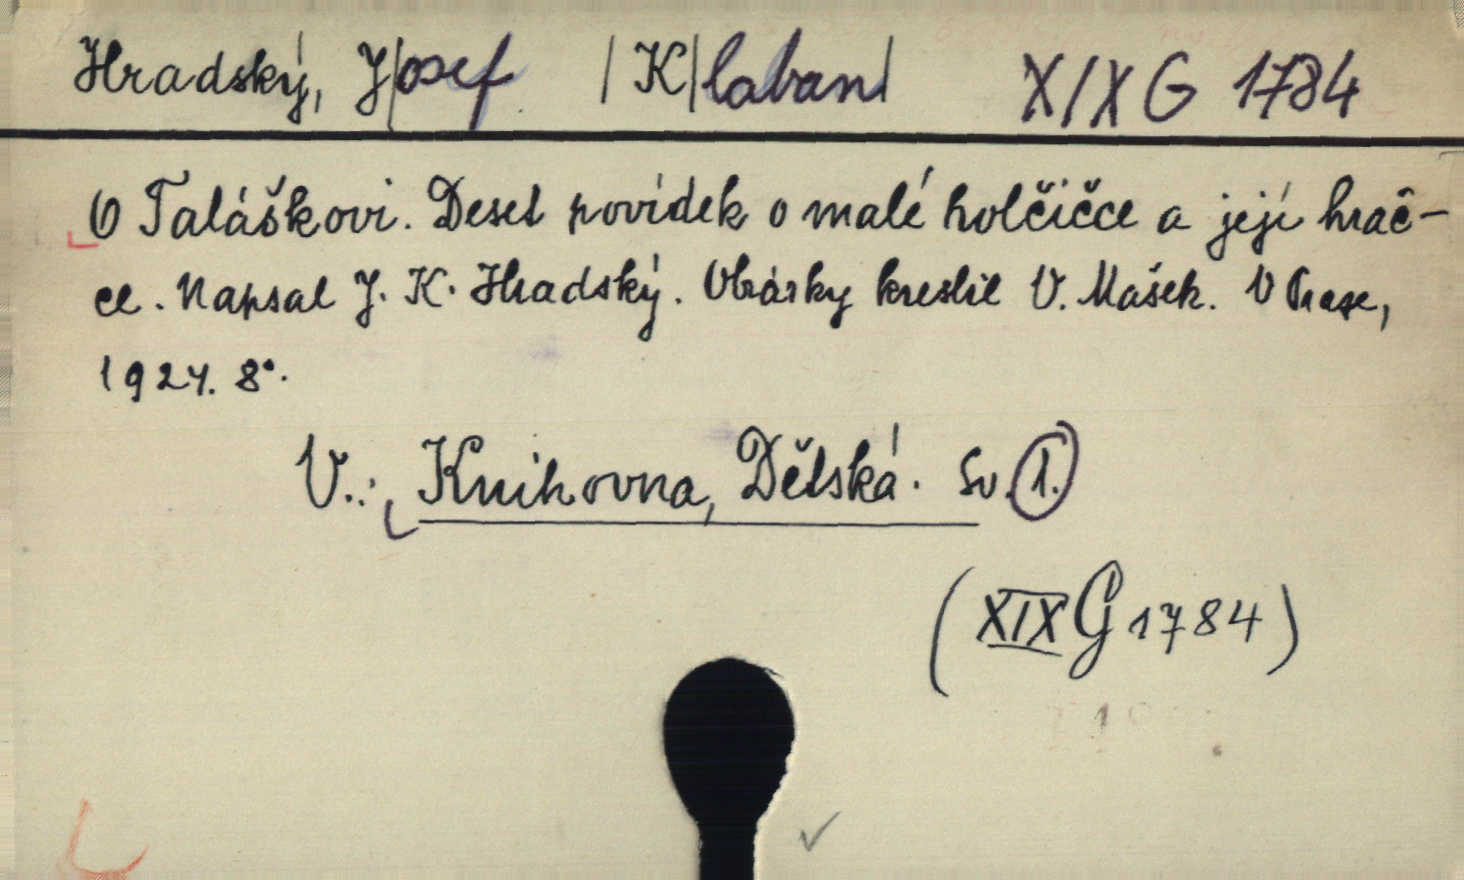 Hradský, J|osef |K|laban| XIX G 1784
O Taláškovi. Deset povídek o malé holčičce a její hrač-
ce. Napsal J. K. Hradský. Obrázky kreslil V. Mašek. V Praze,
1924. 8°.
V.: Knihovna, Dětská. Sv. 1.
(XIX G 1784)